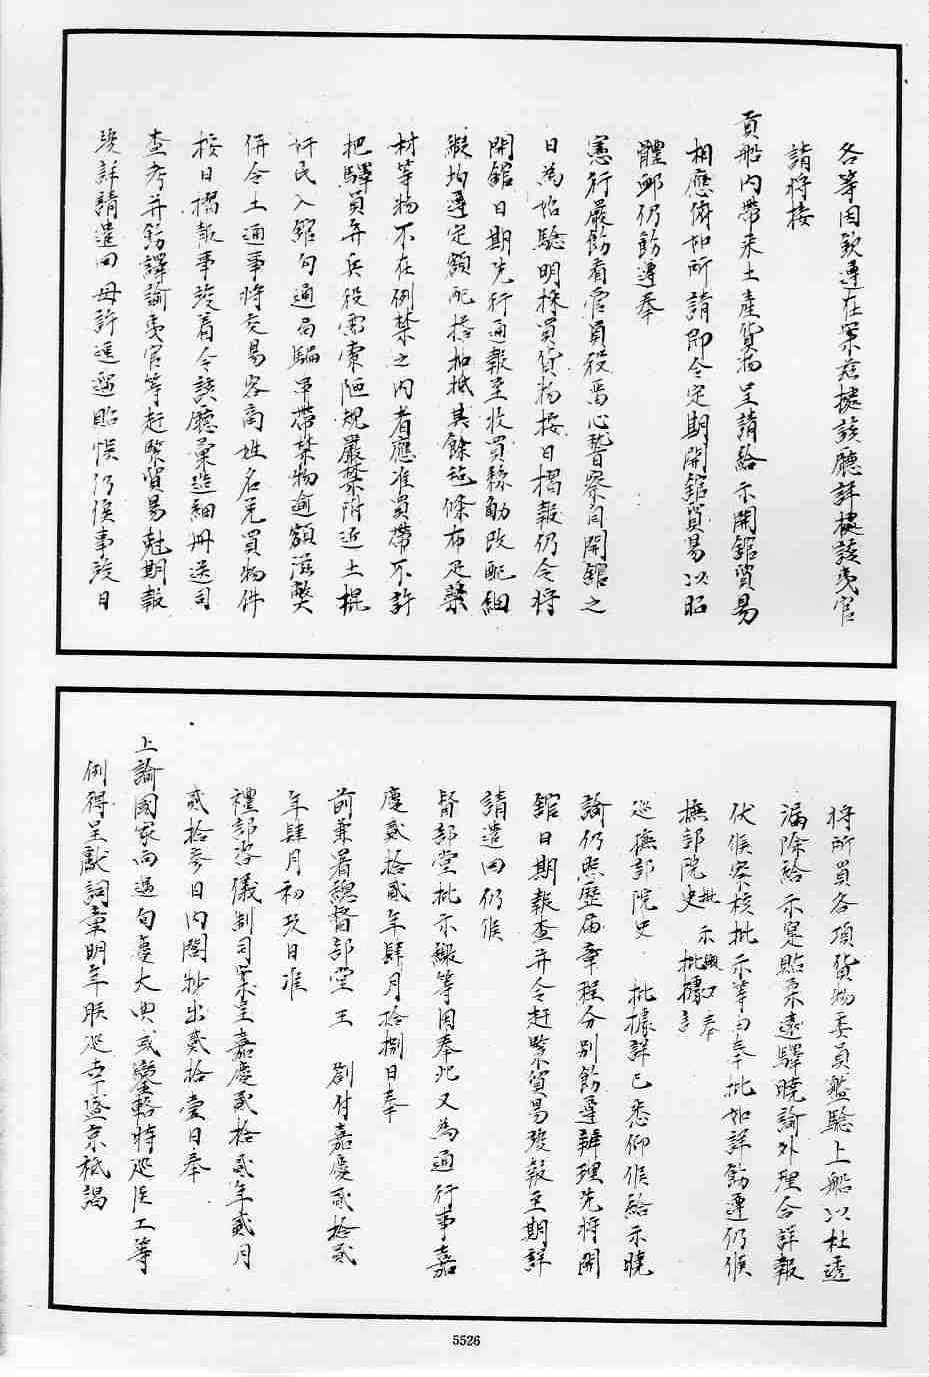 各等因欽遵在案茲據該廳詳據該夷官
請將接
貢船內帶來土產貨物呈請給示開館貿易
相應俯如所請即令定期開館貿易以昭
體卹仍飭遵奉
憲行嚴飭看官員役悉心稽察自開館之
日為始驗明採買貨物按日摺報仍令將
開館日期先行通報至收買絲觔改配綢
緞均遵定額配搭扣抵其餘毡條布疋藥
材等物不在例禁之內者應准買帶不許
把驛員弁兵役需索陋規嚴禁附近土棍
奸民入館勾通局騙串帶禁物逾額滋弊
併令土通事將交易客商姓名兌買物件
按日摺報事竣着令該廳彙造細冊送司
查考并飭譯諭夷官等赶緊貿易尅期報
竣詳請遣回毋許逗遛貽悞仍俟事竣日
將所買各項貨物委員盤驗上船以杜透
漏除給示寔貼柔遠驛曉諭外理合詳報
伏候察核批示等由奉批如詳飭遵仍候
撫部院史批示繳又奉
巡撫部院史 批據詳已悉仰候給示曉
諭仍照歷屆章程分別飭遵辦理先將開
館日期報查并令赶緊貿易竣報至期詳
請遣回仍候
督部堂批示繳等因奉此又為通行事嘉
慶貳拾貳年肆月拾捌日奉
前兼署總督部堂王 劄付嘉慶貳拾貳
年肆月初玖日准
禮部咨儀制司案呈嘉慶貳拾貳年貳月
貳拾參日內閣抄出貳拾壹日奉
上諭國家向遇旬慶大典或鑾輅時巡臣工等
例得呈獻詞章明年朕巡幸盛京祗謁
5526